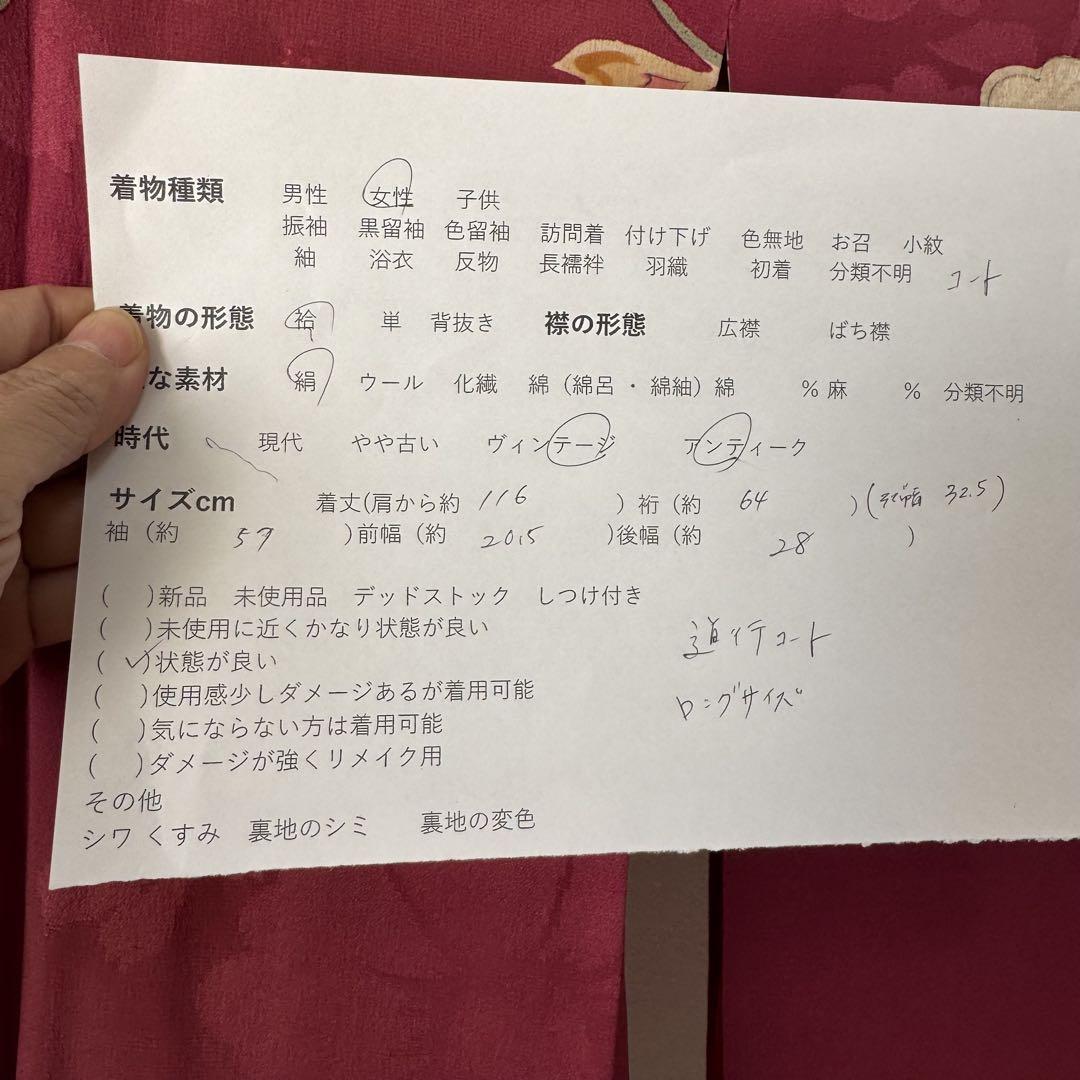 着物種類 男性 女性 子供
振袖 黒留袖 色留袖 訪問着 付け下げ 色無地 お召 小紋
紬 浴衣 反物 長襦袢 羽織 初着 分類不明 コート
着物の形態 袷 単 背抜き 襟の形態 広襟 ばち襟
な素材 絹 ウール 化繊 綿（綿呂 ・ 綿紬）綿 % 麻 % 分類不明
時代 現代 やや古い ヴィンテージ アンティーク
サイズcm 着丈(肩から約 116 ) 裄 (約 64 ) (そで幅 32.5)
袖（約 59 )前幅（約 20.5 )後幅（約 28 )
( )新品 未使用品 デッドストック しつけ付き
( )未使用に近くかなり状態が良い
(✓)状態が良い
( )使用感少しダメージあるが着用可能
( )気にならない方は着用可能
( )ダメージが強くリメイク用
その他
シワ くすみ 裏地のシミ 裏地の変色
道行コート
ロングサイズ